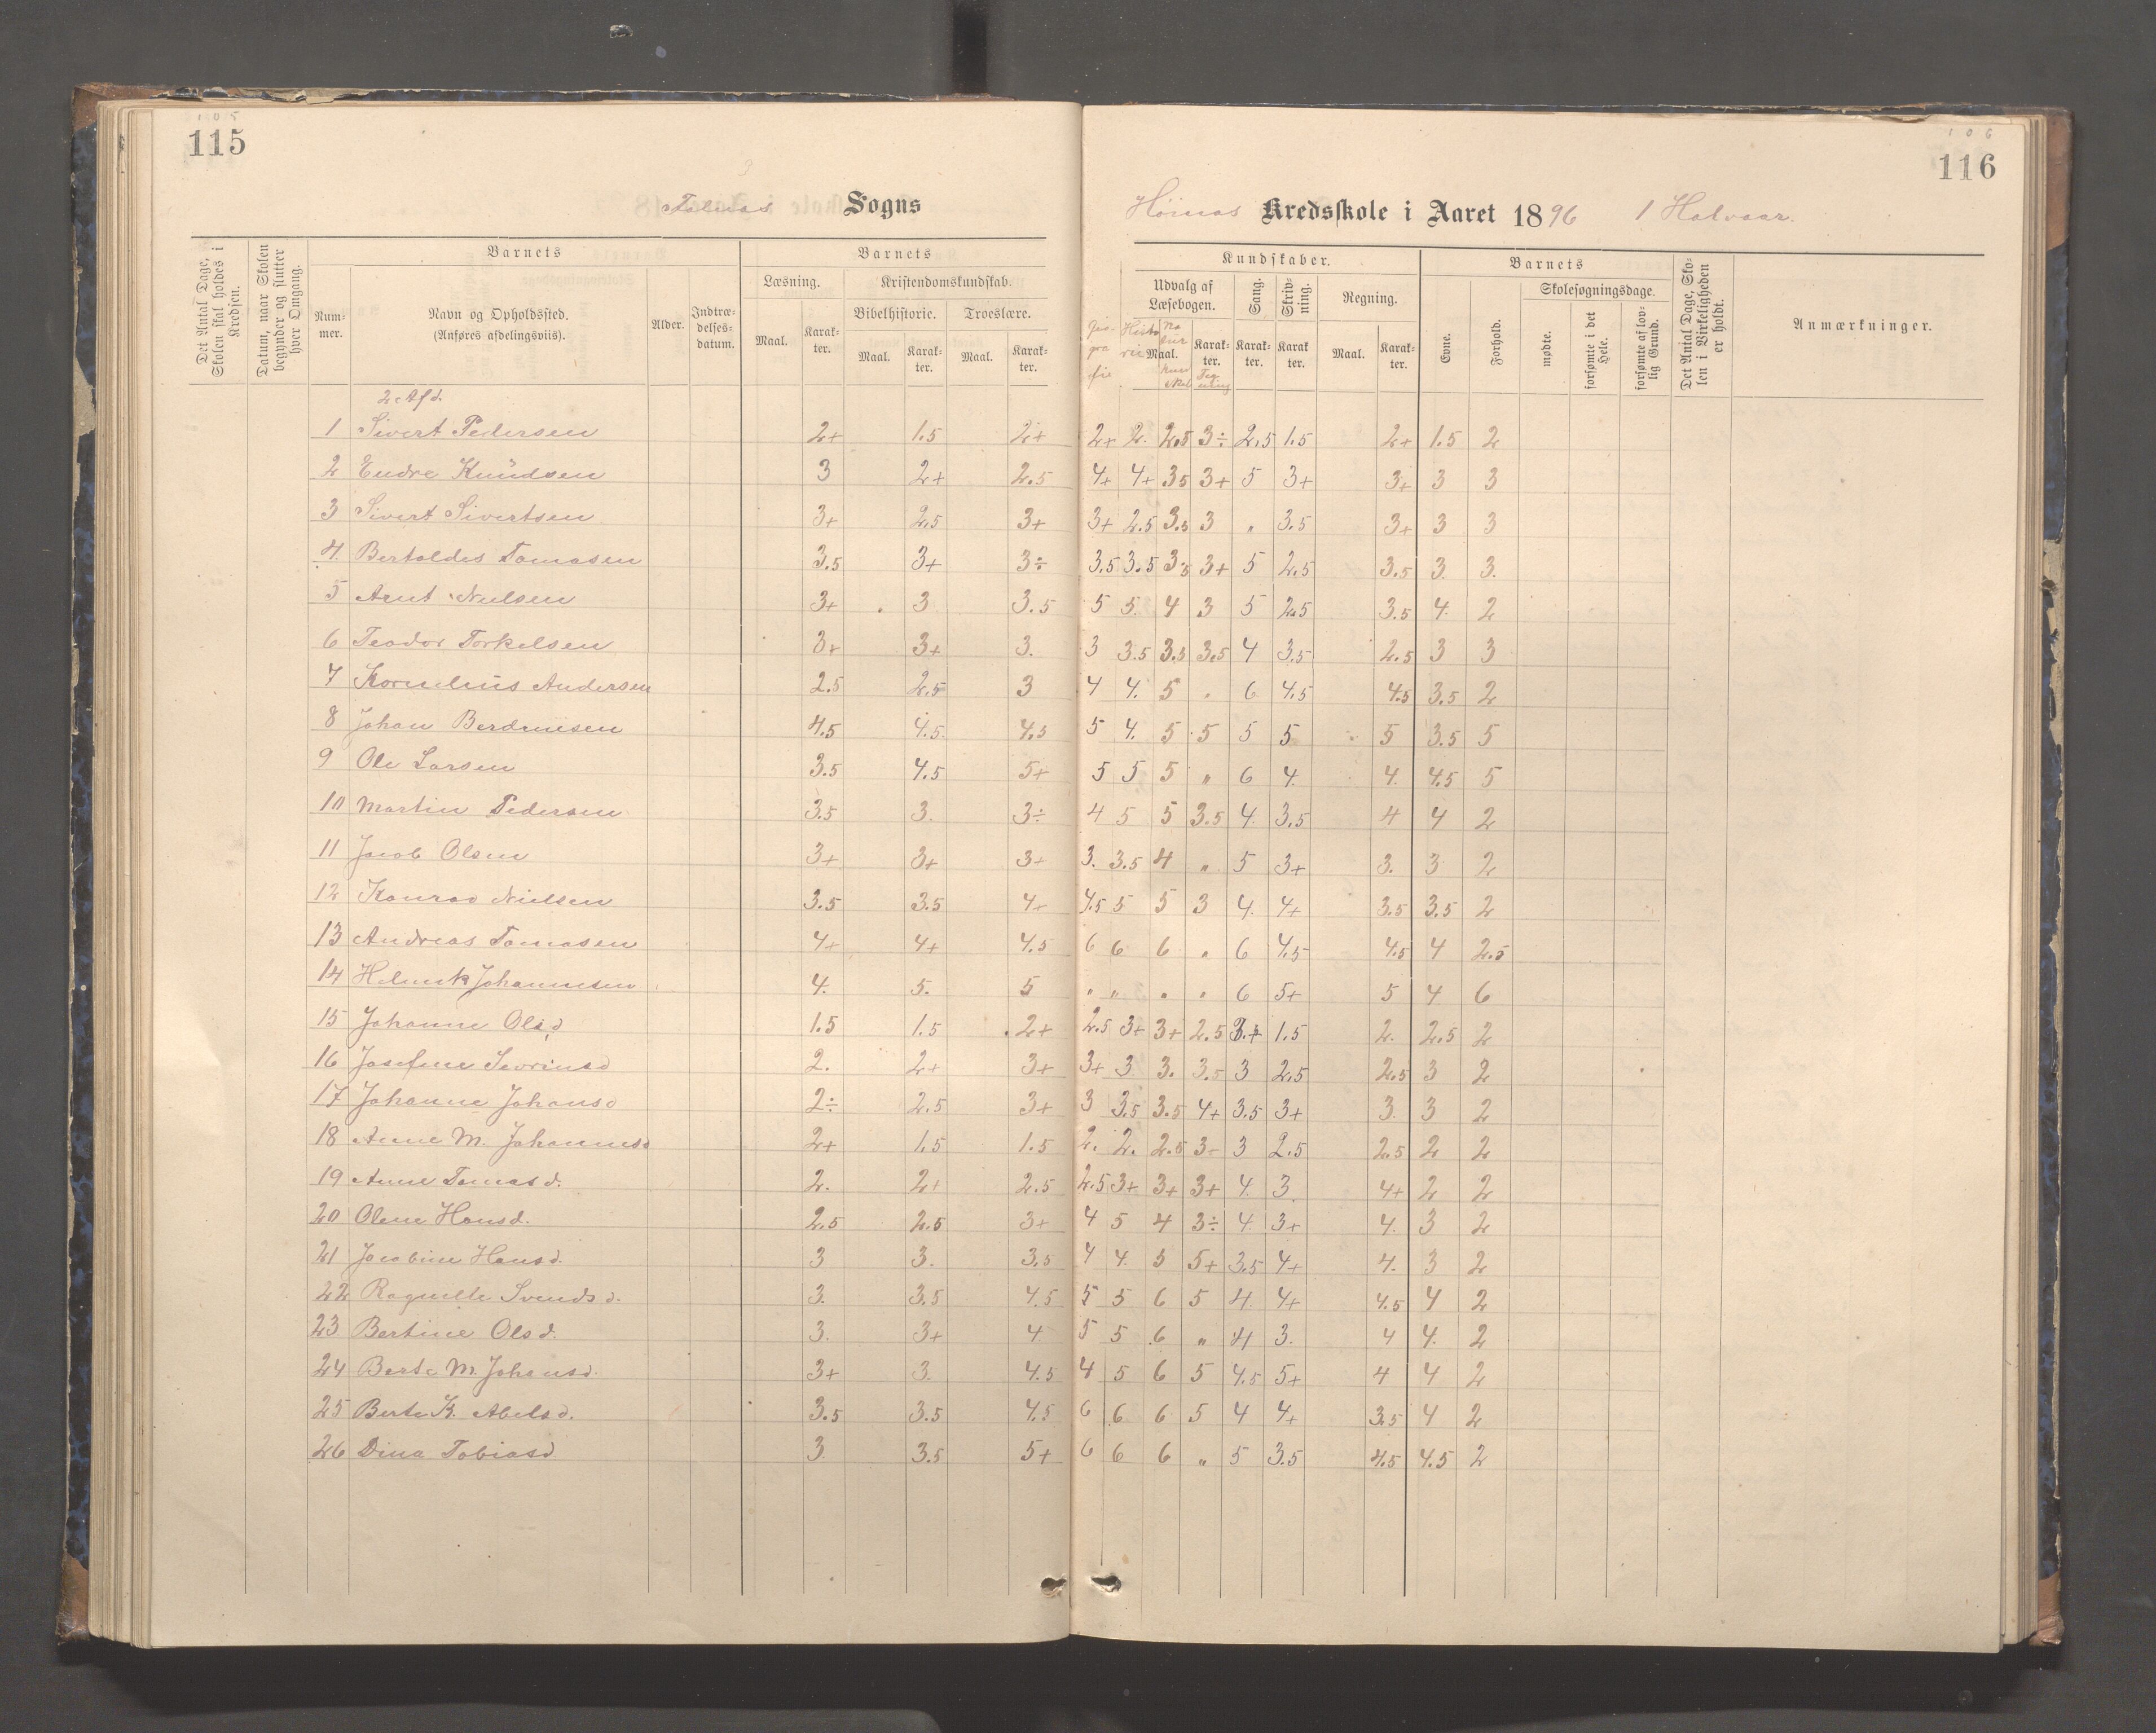 105
115
Sogns
106
116
Kredsskole i Aaret 1896 1 Halvaar.
Det Antal Dage, Skolen skal holdes i Kredsen.
Datum, naar Skolen begynder og slutter hver Omgang.
Barnets
Num-mer.
Navn og Opholdssted.
(Anføres afdelingsviis).
Alder.
Indtræ-delses-datum.
Barnets
Læsning.
Maal. Karak-ter.
Kristendomskundskab.
Bibelhistorie. Troeslære.
Maal. Karak-ter. Maal. Karak-ter.
Kundskaber.
Udvalg af Læsebogen.
Geo-gra-fie Histo-rie Na-tur-kund-skab Maal. Karak-ter. Teg-ning
Sang. Karak-ter.
Skriv-ning. Karak-ter.
Regning.
Maal. Karak-ter.
Barnets
Evne. Forhold.
Skolesøgningsdage.
mødte. forsømte i det Hele. forsømte af lov-lig Grund.
Det Antal Dage, Sko-len i Virkeligheden er holdt.
Anmærkninger.
2 Afd.
1 Sivert Pedersen 2+ 1.5 2+ 2+ 2. 2.5 3÷ 2.5 1.5 2+ 1.5 2
2 Endre Knudsen 3 2+ 2.5 4+ 4+ 3.5 3+ 5 3+ 3+ 3 3
3 Sivert Sivertsen 3+ 2.5 3+ 3+ 2.5 3.5 3 " 3.5 3+ 3 3
4. Bertoldes Tomasen 3.5 3+ 3÷ 3.5 3.5 3.5 3+ 5 2.5 3.5 3. 3.
5 Arnt Nielsen 3+ 3 3.5 5 5. 4 3 5 2.5 3.5 4. 2
6 Teodor Torkelsen 3+ 3+ 3. 3 3.5 3.5 3.5 4 3.5 2.5 3 3
7 Kornelius Andersen 2.5 2.5 3 4 4. 5 " 6 4.5 4.5 3.5 2
8 Johan Berdinesen 4.5 4.5 4.5 5 4. 5 5 5 5 5 3.5 5
9 Ole Larsen 3.5 4.5 5+ 5 5 5 " 6 4. 4. 4.5 5
10 Martin Pedersen 3.5 3. 3÷ 4 5 5 3.5 4. 3.5 4 4 2
11 Jacob Olsen 3+ 3+ 3+ 3. 3.5 4 " 5 3+ 3. 3 2
12 Konrad Nielsen 3.5 3.5 4+ 4.5 5 5 3 4. 4+ 3.5 3.5 2
13 Andreas Tomasen 4+ 4+ 4.5 6 6 6 " 6 4.5 4.5 4 2.5
14 Helmik Johannesen 4. 5. 5 " " " " 6 5+ 5 4 6
15 Johanne Olsd 1.5 1.5 2+ 2.5 3+ 3+ 2.5 3.+ 1.5 2. 2.5 2
16 Josefine Sevrinsd 2. 2+ 3+ 3+ 3 3. 3.5 3 2.5 2.5 3 2
17 Johanne Johansd 2÷ 2.5 3+ 3 3.5 3.5 4+ 3.5 3+ 3. 3 2
18 Anne M. Johannesd 2+ 1.5 1.5 2. 2. 2.5 3÷ 3 2.5 2.5 2 2
19 Anne Tomasd. 2. 2+ 2.5 2.5 3+ 3+ 3+ 4. 3. 4+ 2 2
20 Olene Hansd. 2.5 2.5 3+ 4 5 4 3÷ 4. 3+ 4. 3 2
21 Jacobine Hansd. 3 3. 3.5 4 4. 5 5+ 3.5 4+ 4. 3 2
22 Ragnelle Svendsd. 3. 3.5 4.5 5 5 6 5 4. 4+ 4.5 4 2
23 Bertine Olsd. 3. 3+ 4. 5 5 6 " 4 3. 4 4. 2
24 Berte M. Johansd. 3+ 3. 4.5 4 5 6 5 4.5 5+ 4 4 2
25 Berte K. Abelsd. 3.5 3.5 4.5 6 6 6 5 4 4+ 3.5 4 2
26 Dina Tobiasd 3 3.5 5+ 6 6 6 " 5 3.5 4.5 4.5 2